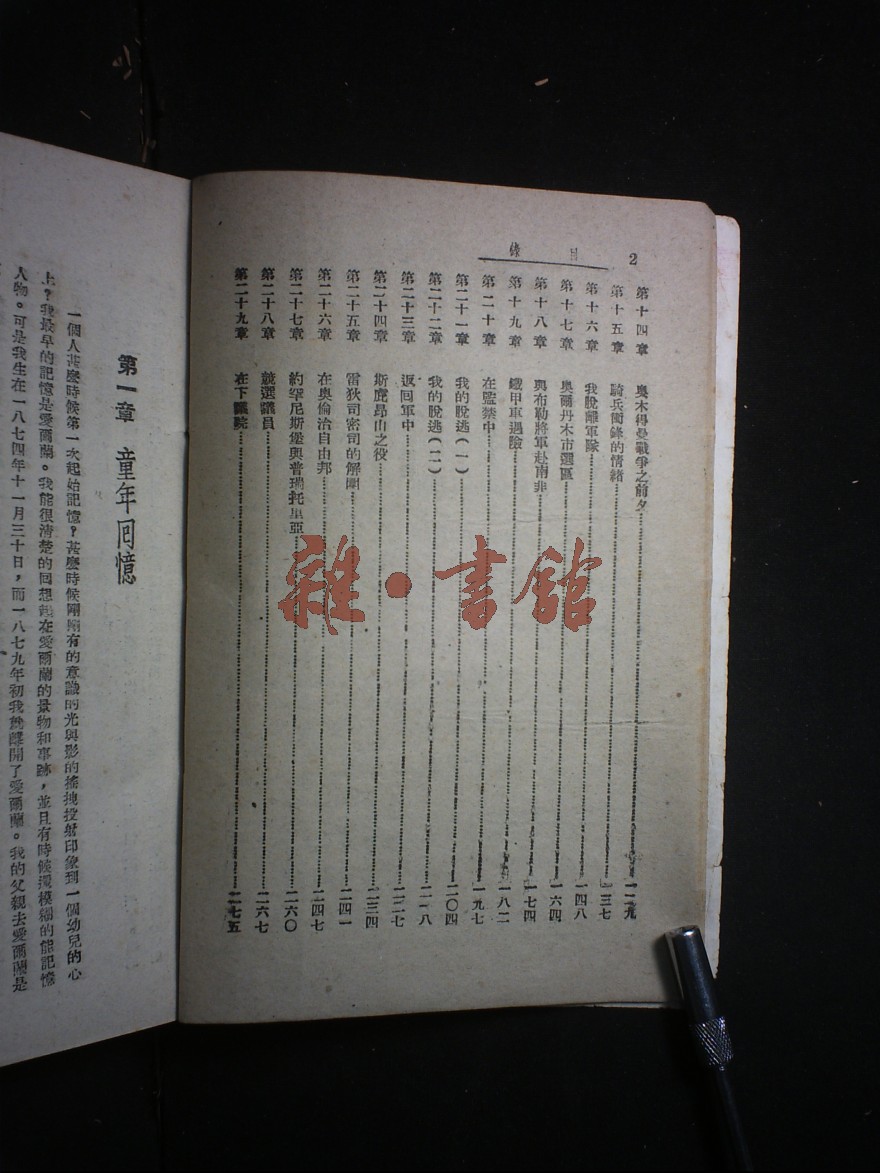 2
目錄
第十四章 奧木得曼戰爭之前夕 一二九
第十五章 騎兵衝鋒的情緒 一三七
第十六章 我脫離軍隊 一四八
第十七章 奧爾丹木市選區 一六四
第十八章 與布勒將軍赴南非 一七四
第十九章 鐵甲車遇險 一八二
第二十章 在監禁中 一九七
第二十一章 我的脫逃(一) 二〇四
第二十二章 我的脫逃(二) 二一八
第二十三章 返回軍中 二二七
第二十四章 斯賓昂山之役 二三四
第二十五章 雷狄司密司的解圍 二四一
第二十六章 在奧倫治自由邦 二四七
第二十七章 約罕尼斯堡與普瑞托里亞 二六〇
第二十八章 競選議員 二六七
第二十九章 在下議院 二七五
雜·書館
第一章 童年回憶
一個人甚麼時候第一次起始記憶?甚麼時候剛剛有的意識的光與影的搖拽投射印象到一個幼兒的心
上?我最早的記憶是愛爾蘭。我能很清楚的回想我在愛爾蘭的景物和事跡,並且有時候很模糊的能記憶
人物。可是我生在一八七四年十一月三十日,而一八七九年初我就離開了愛爾蘭。我的父親去愛爾蘭是